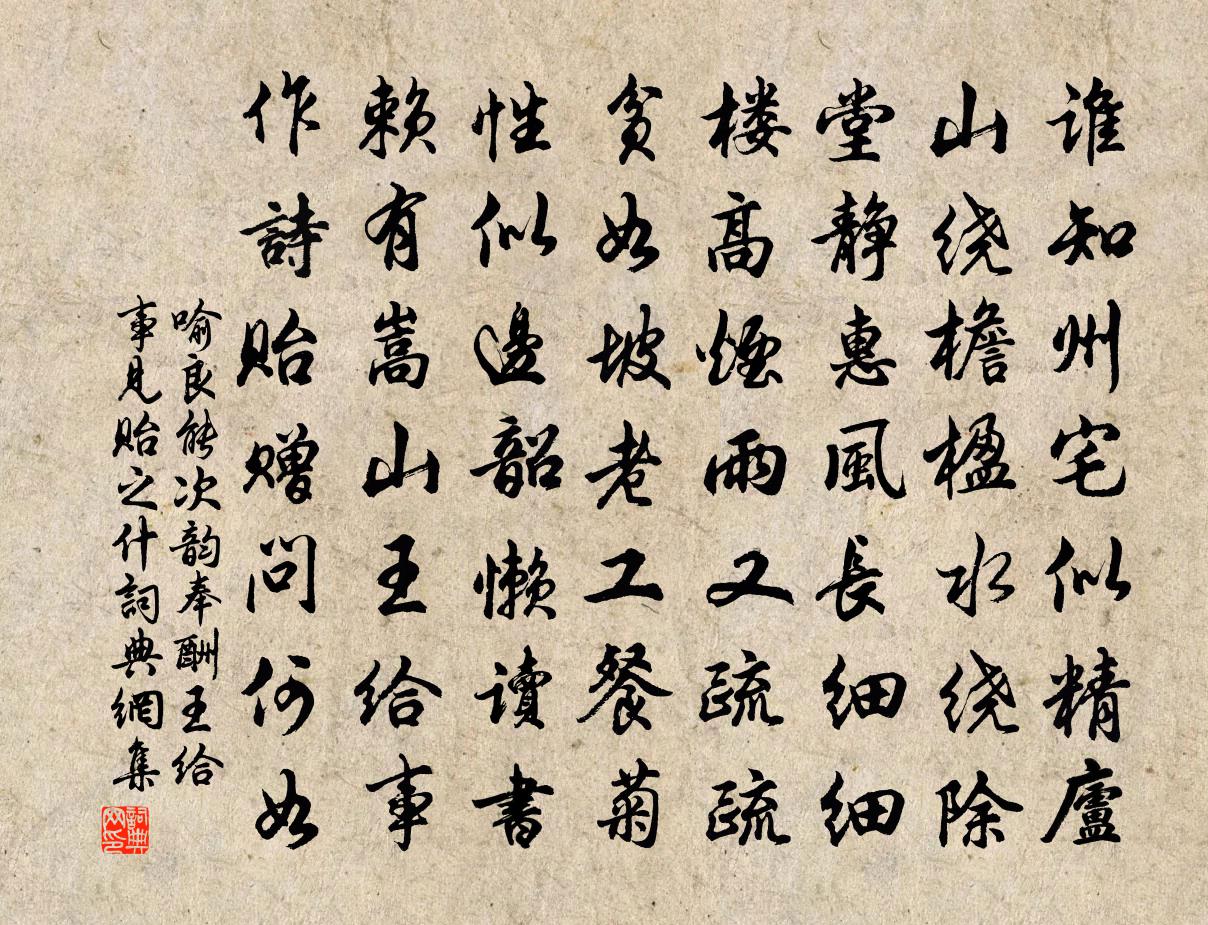 谁知州宅似精廬
山绕檐楹水绕除
堂静惠風長细细
楼高煙雨又疏疏
贫如坡老工餐菊
性似邊韶懒讀書
赖有嵩山王给事
作詩贻赠问何如
喻良能次韵奉酬王给
事見贻之什詞典網集
詞典
网印